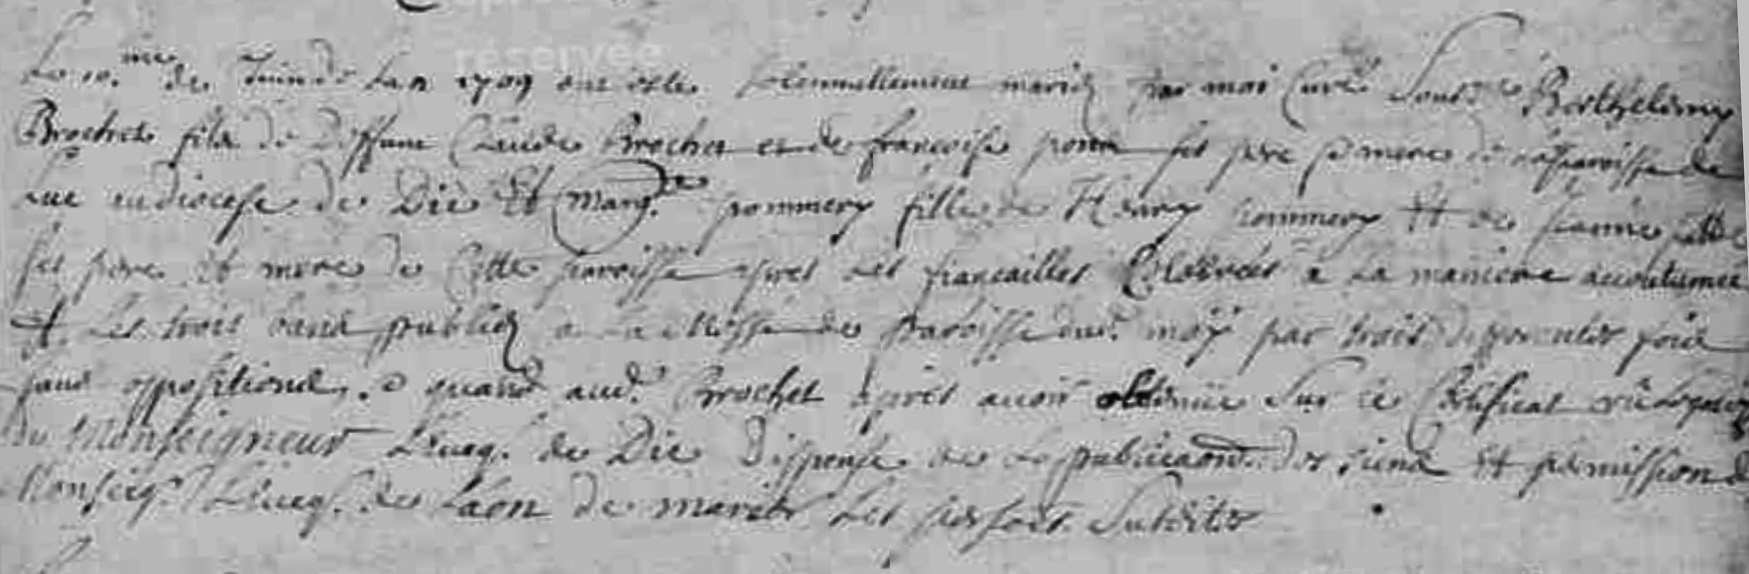 réservée
Le 10.me de Juin de L'an 1709 ont estes solennellement mariez par moi Curé Soub.né Berthelemy
Brochet fils de deffunt Claude Brochet et de françoise ses pere & mere de la paroisse de
Luc au diocese de Die Et Marg.te pommery fille de Henry pommery Et de Jeanne
ses pere et mere de Cette paroisse apres Les fiançailles Celebrées a La maniere accoutumée
Et Les trois bans publiez a La Messe de paroisse moy par trois differentes fois
sans oppositions. & quand aud. Brochet apres avoir obtenüe Sur le Certificat
de Monseigneur L'eveq. de Die dispense de La publication des siens Et permission de
Monseig.r L'eveq. de Laon de marier Les susdits